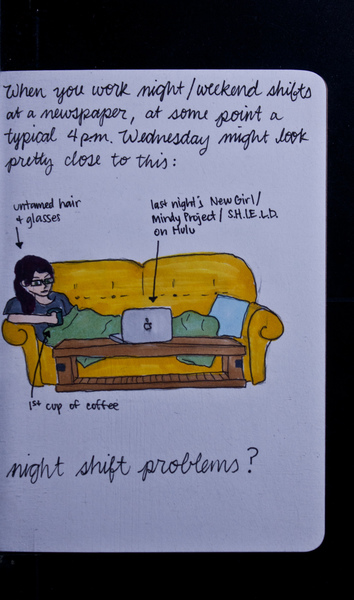 When you work night/weekend shifts
at a newspaper, at some point a
typical 4 p.m. Wednesday might look
pretty close to this:
untamed hair
+ glasses
last night's New Girl/
Mindy Project/S.H.I.E.L.D.
on Hulu
1st cup of coffee
night shift problems?